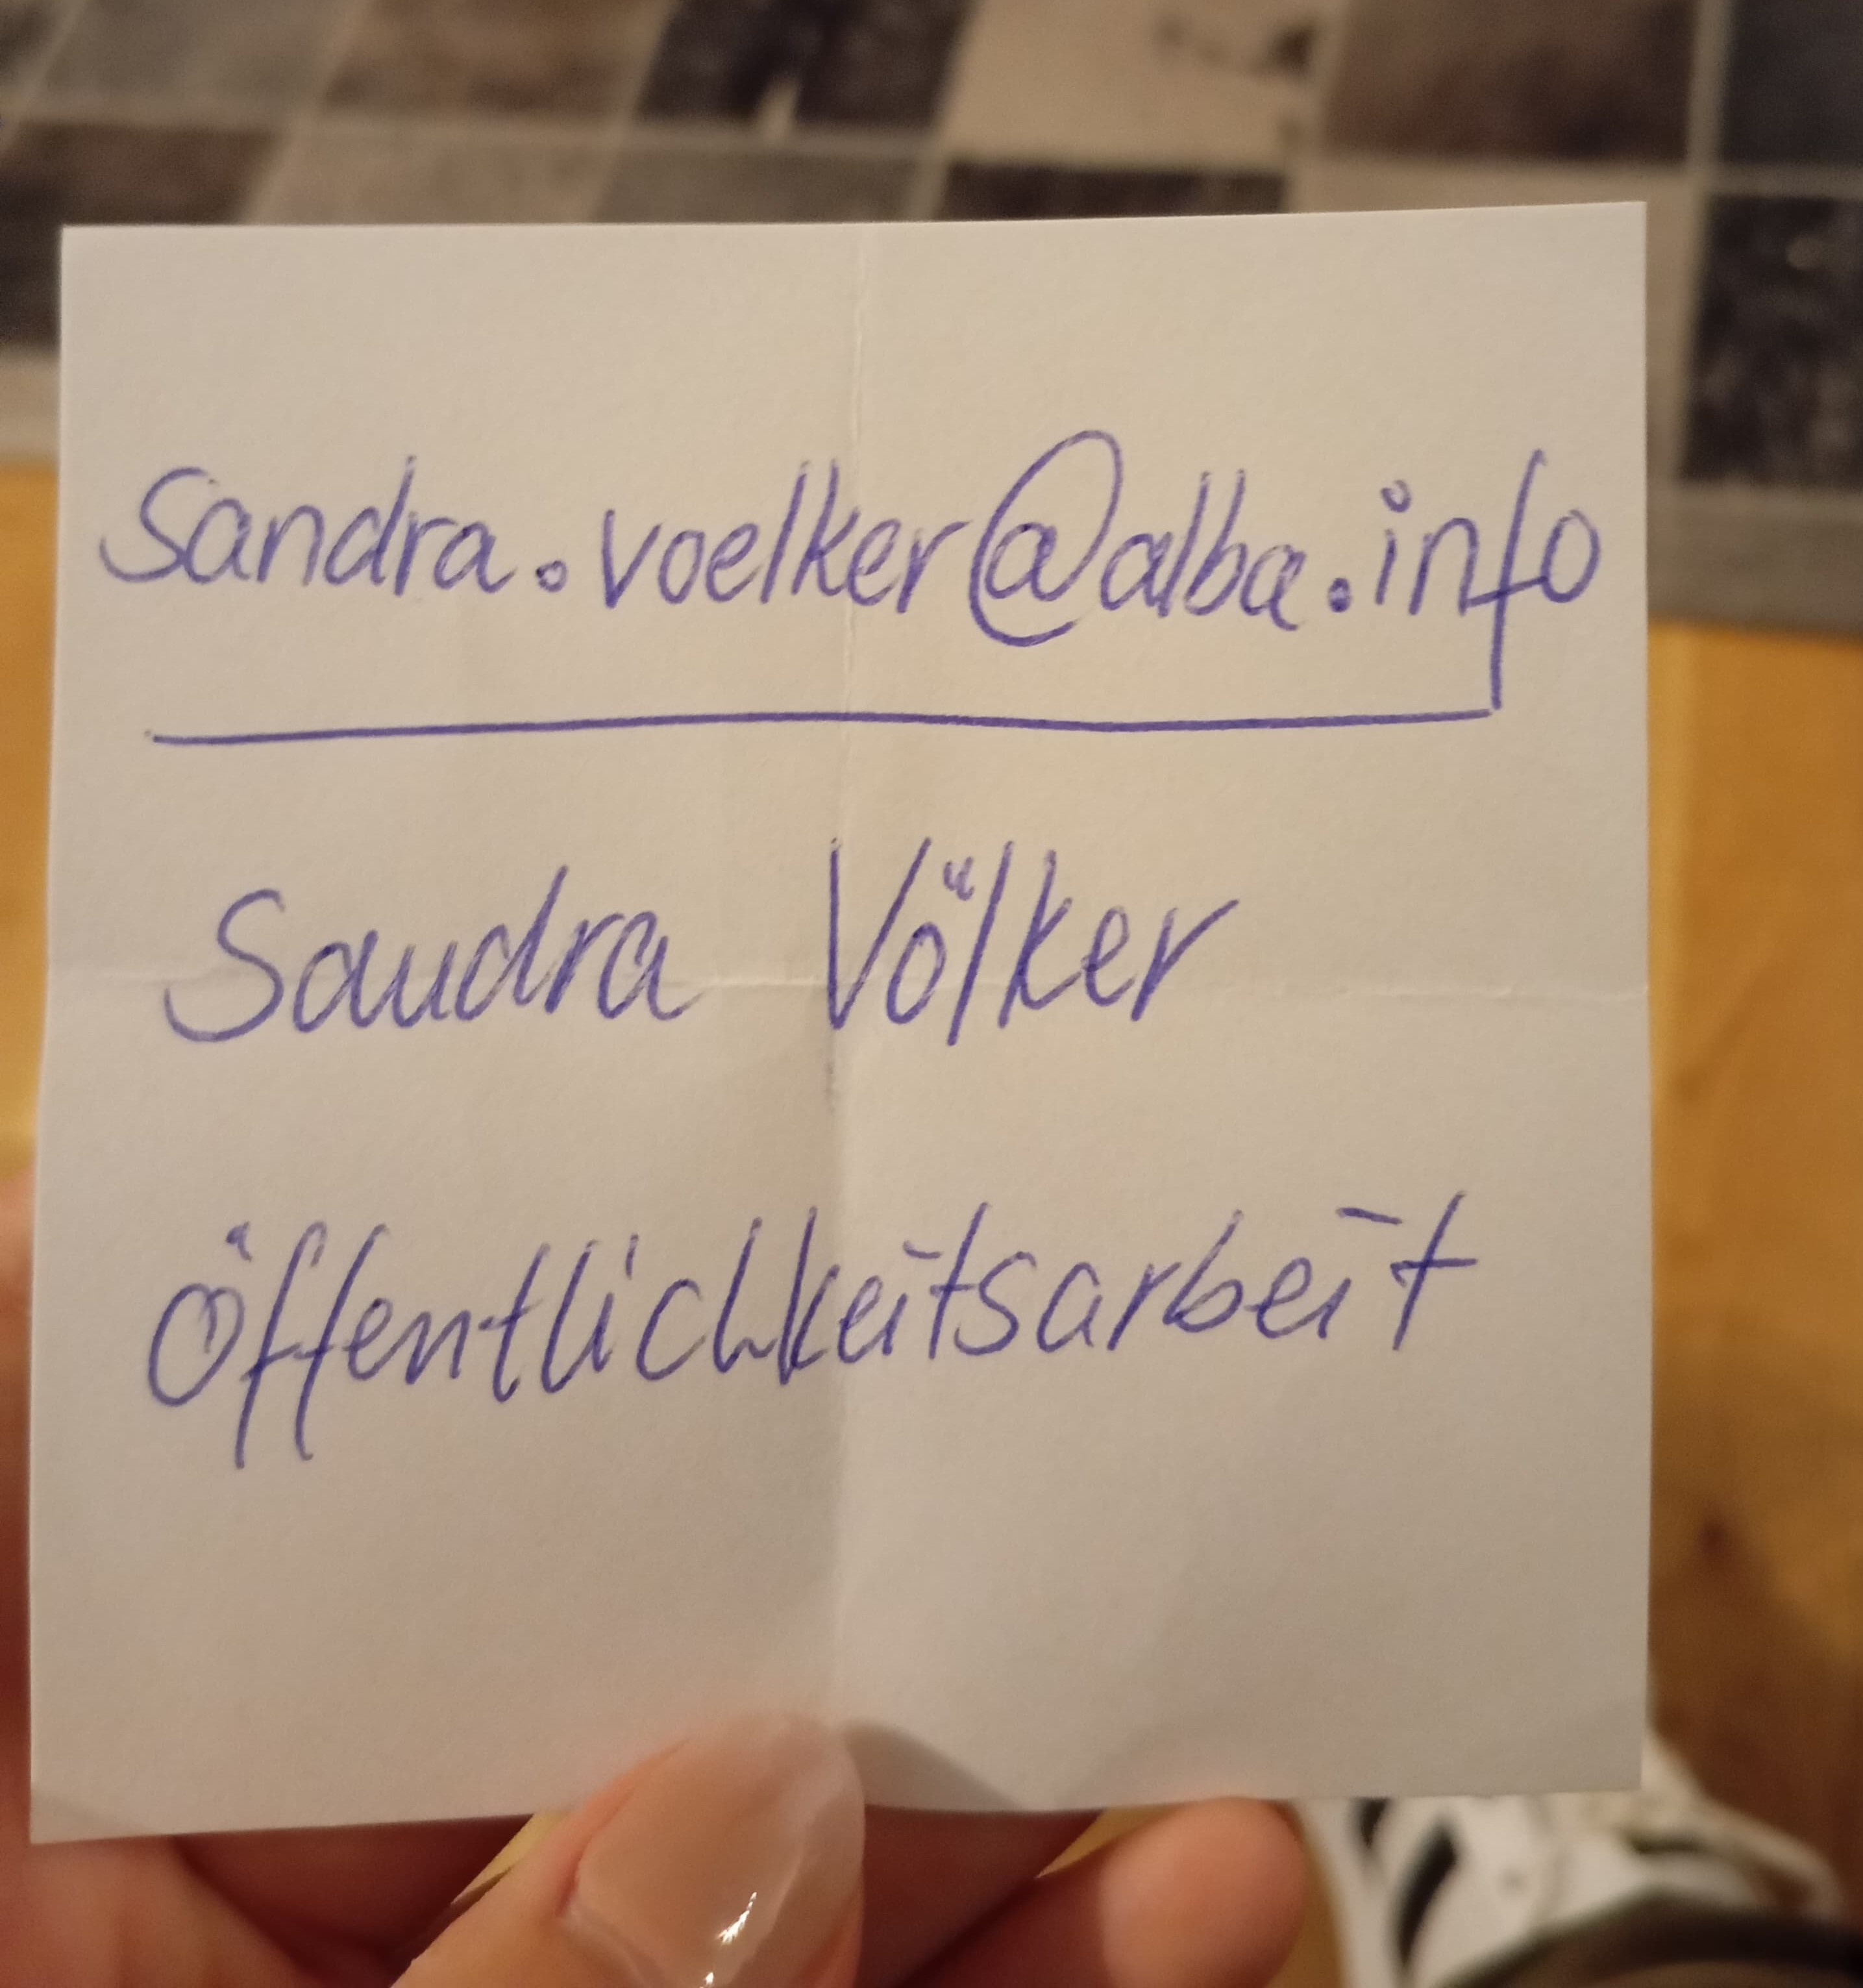 Sandra.voelker@alba.info
Sandra Völker
Öffentlichkeitsarbeit